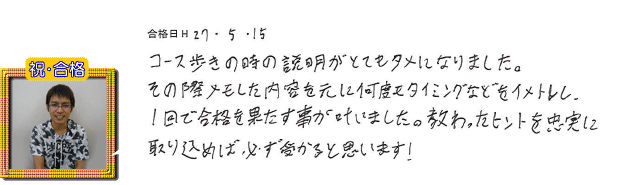 祝・合格
合格日 H 27・5・15
コース歩きの時の説明がとてもタメになりました。
その際メモした内容を元に何度もタイミングなどをイメトレし、
1回で合格を果たす事が叶いました。教わったヒントを忠実に
取り込めば、必ず受かると思います!